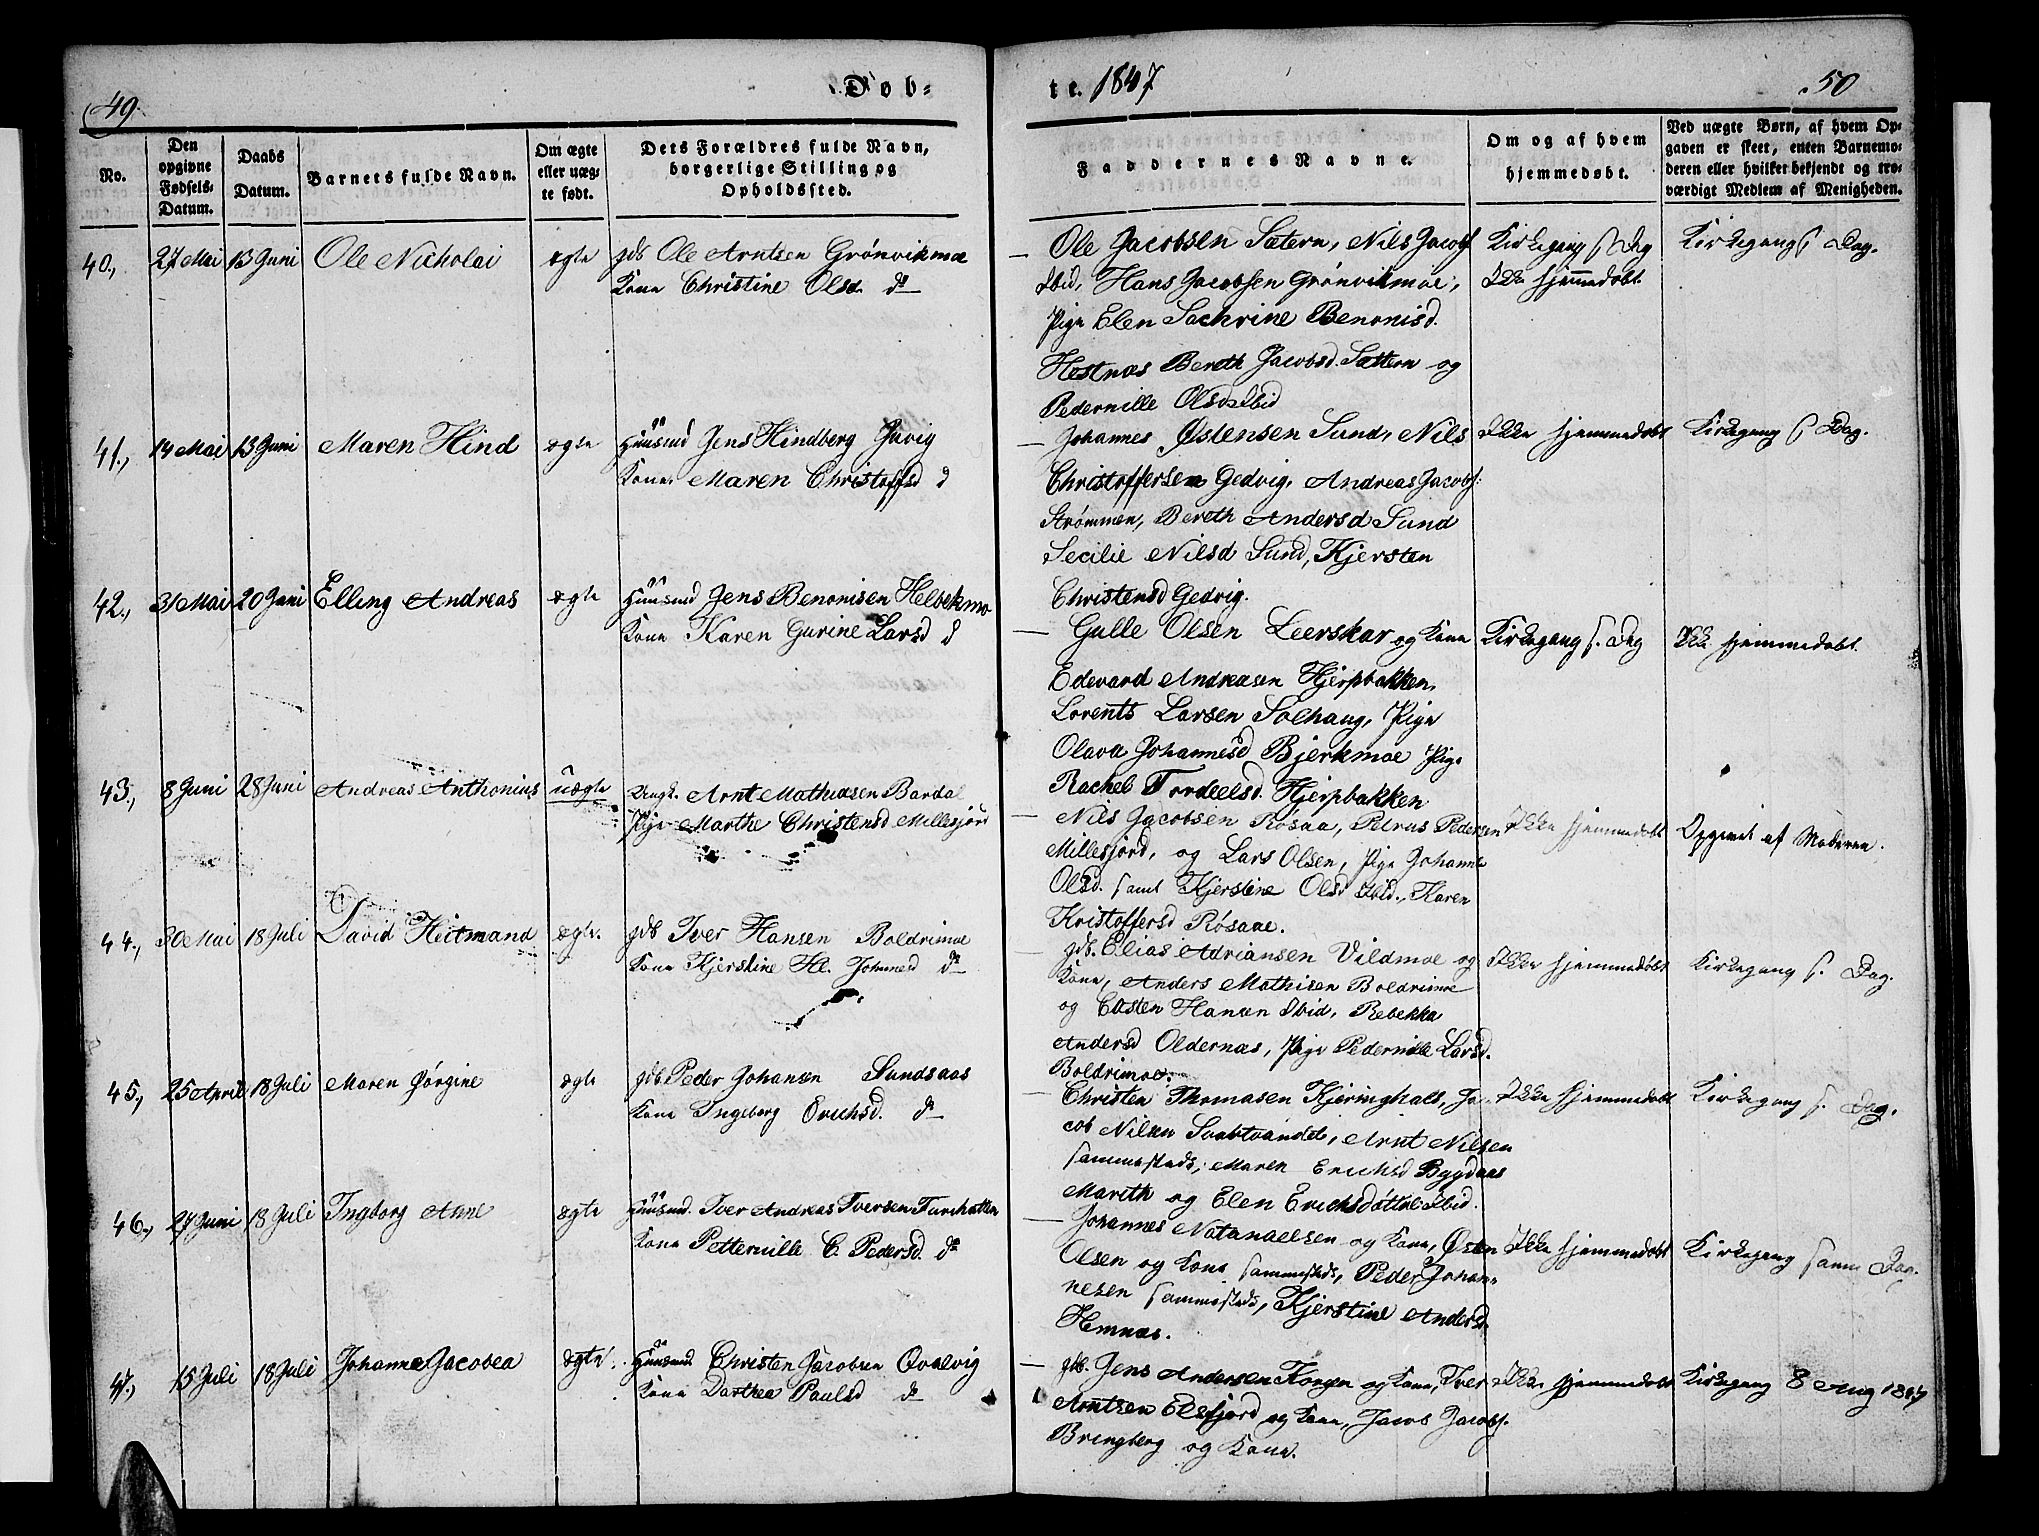 49.
Døb-
No.
Den
opgivne
Fødsels-
Datum.
Daabs
Datum.
Barnets fulde Navn.
Om ægte
eller uæg-
te født.
Dets Forældres fulde Navn,
borgerlige Stilling og
Opholdsfted.
40., 27 Mai 13 Juni Ole Nicholai ægte gdb Ole Arntsen Grønvikmoe
Kone Christine Olsd. do
41., 14 Mai 13 Juni Maren Hind ægte Huusmd Jens Hindberg
Kone Maren Christoffsd d
42., 31 Mai 20 Juni Elling Andreas ægte Huusmd Jens Benonisen Helbekmo
Kone Karen Gurine Larsd d
43., 8 Juni 28 Juni Andreas Anthonius uægte Ungk. Arnt Mathiasen Bardal
Pige Marthe Christensd Millesjord
44., 30 Mai 18 Juli David Hitmand ægte. gdb Iver Hansen Boldrimoe
Kone Kjerstine do
45., 25 April 18 Juli Maren Jørgine ægte gdb Peder Johansen Sundsaas
Kone Ingeborg Erichsd. do
46., 27 Juni 18 Juli Ingborg Anne ægte Huusmd. Iver Andreas Iversen
Kone Petternille C. Pedersd. do
47., 15 Juli 18 Juli Johanne Jacobea ægte Huusmd Christen Jacobsen Qvalvig
Kone Dorthea Paulsd do
te. 1847
50
Faddernes Navne.
Om og af hvem
hjemmedøbt.
Ved uægte Børn, af hvem Op-
gaven er skeet, enten Barnemo-
deren eller hvilket bekjendt og tro-
værdigt Medlem af Menigheden.
Ole Jacobsen Sætern, Nils Jacobs. Kirkegang s. Dag Kirkegang s. Dag.
Ibid, Hans Jacobsen Grønvikmoe, Ikke hjemmedøbt.
Pige Elen Benonisd.
Hestnæs Bereth Jacobsd. Sættern og
Pedernille Olsd Ibid
Johannes Østensen Sund, Nils Ikke hjemmedøbt Kirkegang s Dag.
Christoffersen Gedvig, Andreas Jacobs.
Strømmen, Bereth Andersd Sund
Secilie Nilsd Sund, Kjersten
Christensd Gedvig.
Gulle Olsen Leerskar og Kone Kirkegang s. Dag Ikke hjemmedøbt.
Edevard Andreasen Hjerpbakken,
Lorents Larsen Solhaug, Pige
Olava Johannesd Bjerkmoe Pige
Rachel Hjerpbakken
Nils Jacobsen Røsaa, Petrus Pedersen Ikke hjemmedøbt Opgivet af Moderen.
Millesjord, og Lars Olsen, Pige Johanne
Olsd. samt Kjerstine Olsd Ibid., Karen
Kristoffersd Røsaae.
gdb. Elias Adriansen Vildmoe og Ikke hjemmedøbt Kirkegang s. Dag.
Kone, Anders Mathisen Boldrimoe
og Hansen Ibid, Rebekka
Andersd Oldernæs, Pige Pedernille Larsd.
Boldrimoe.
Christen Thomasen Kjeringhals, Ja- Ikke hjemmedøbt Kirkegang s. Dag.
cob Nilsen Svabtvandet, Arnt Nilsen
sammesteds, Maren Erichsd Bygdaas
Marith og Elen Erichsdøttre Ibid.
Johannes Natanaelsen og Kone, Østen Ikke hjemmedøbt Kirkegang samme Dag.
Olsen og Kone sammesteds, Peder Johan-
nesen sammesteds, Kjerstine Andersd
Hemnæs.
gdb. Jens Andersen Korgen og Kone, Iver Ikke hjemmedøbt Kirkegang 8 Aug 1847
Arntsen Elsfjord og Kone, Jacob Jacobs.
Bringberg og Kone.